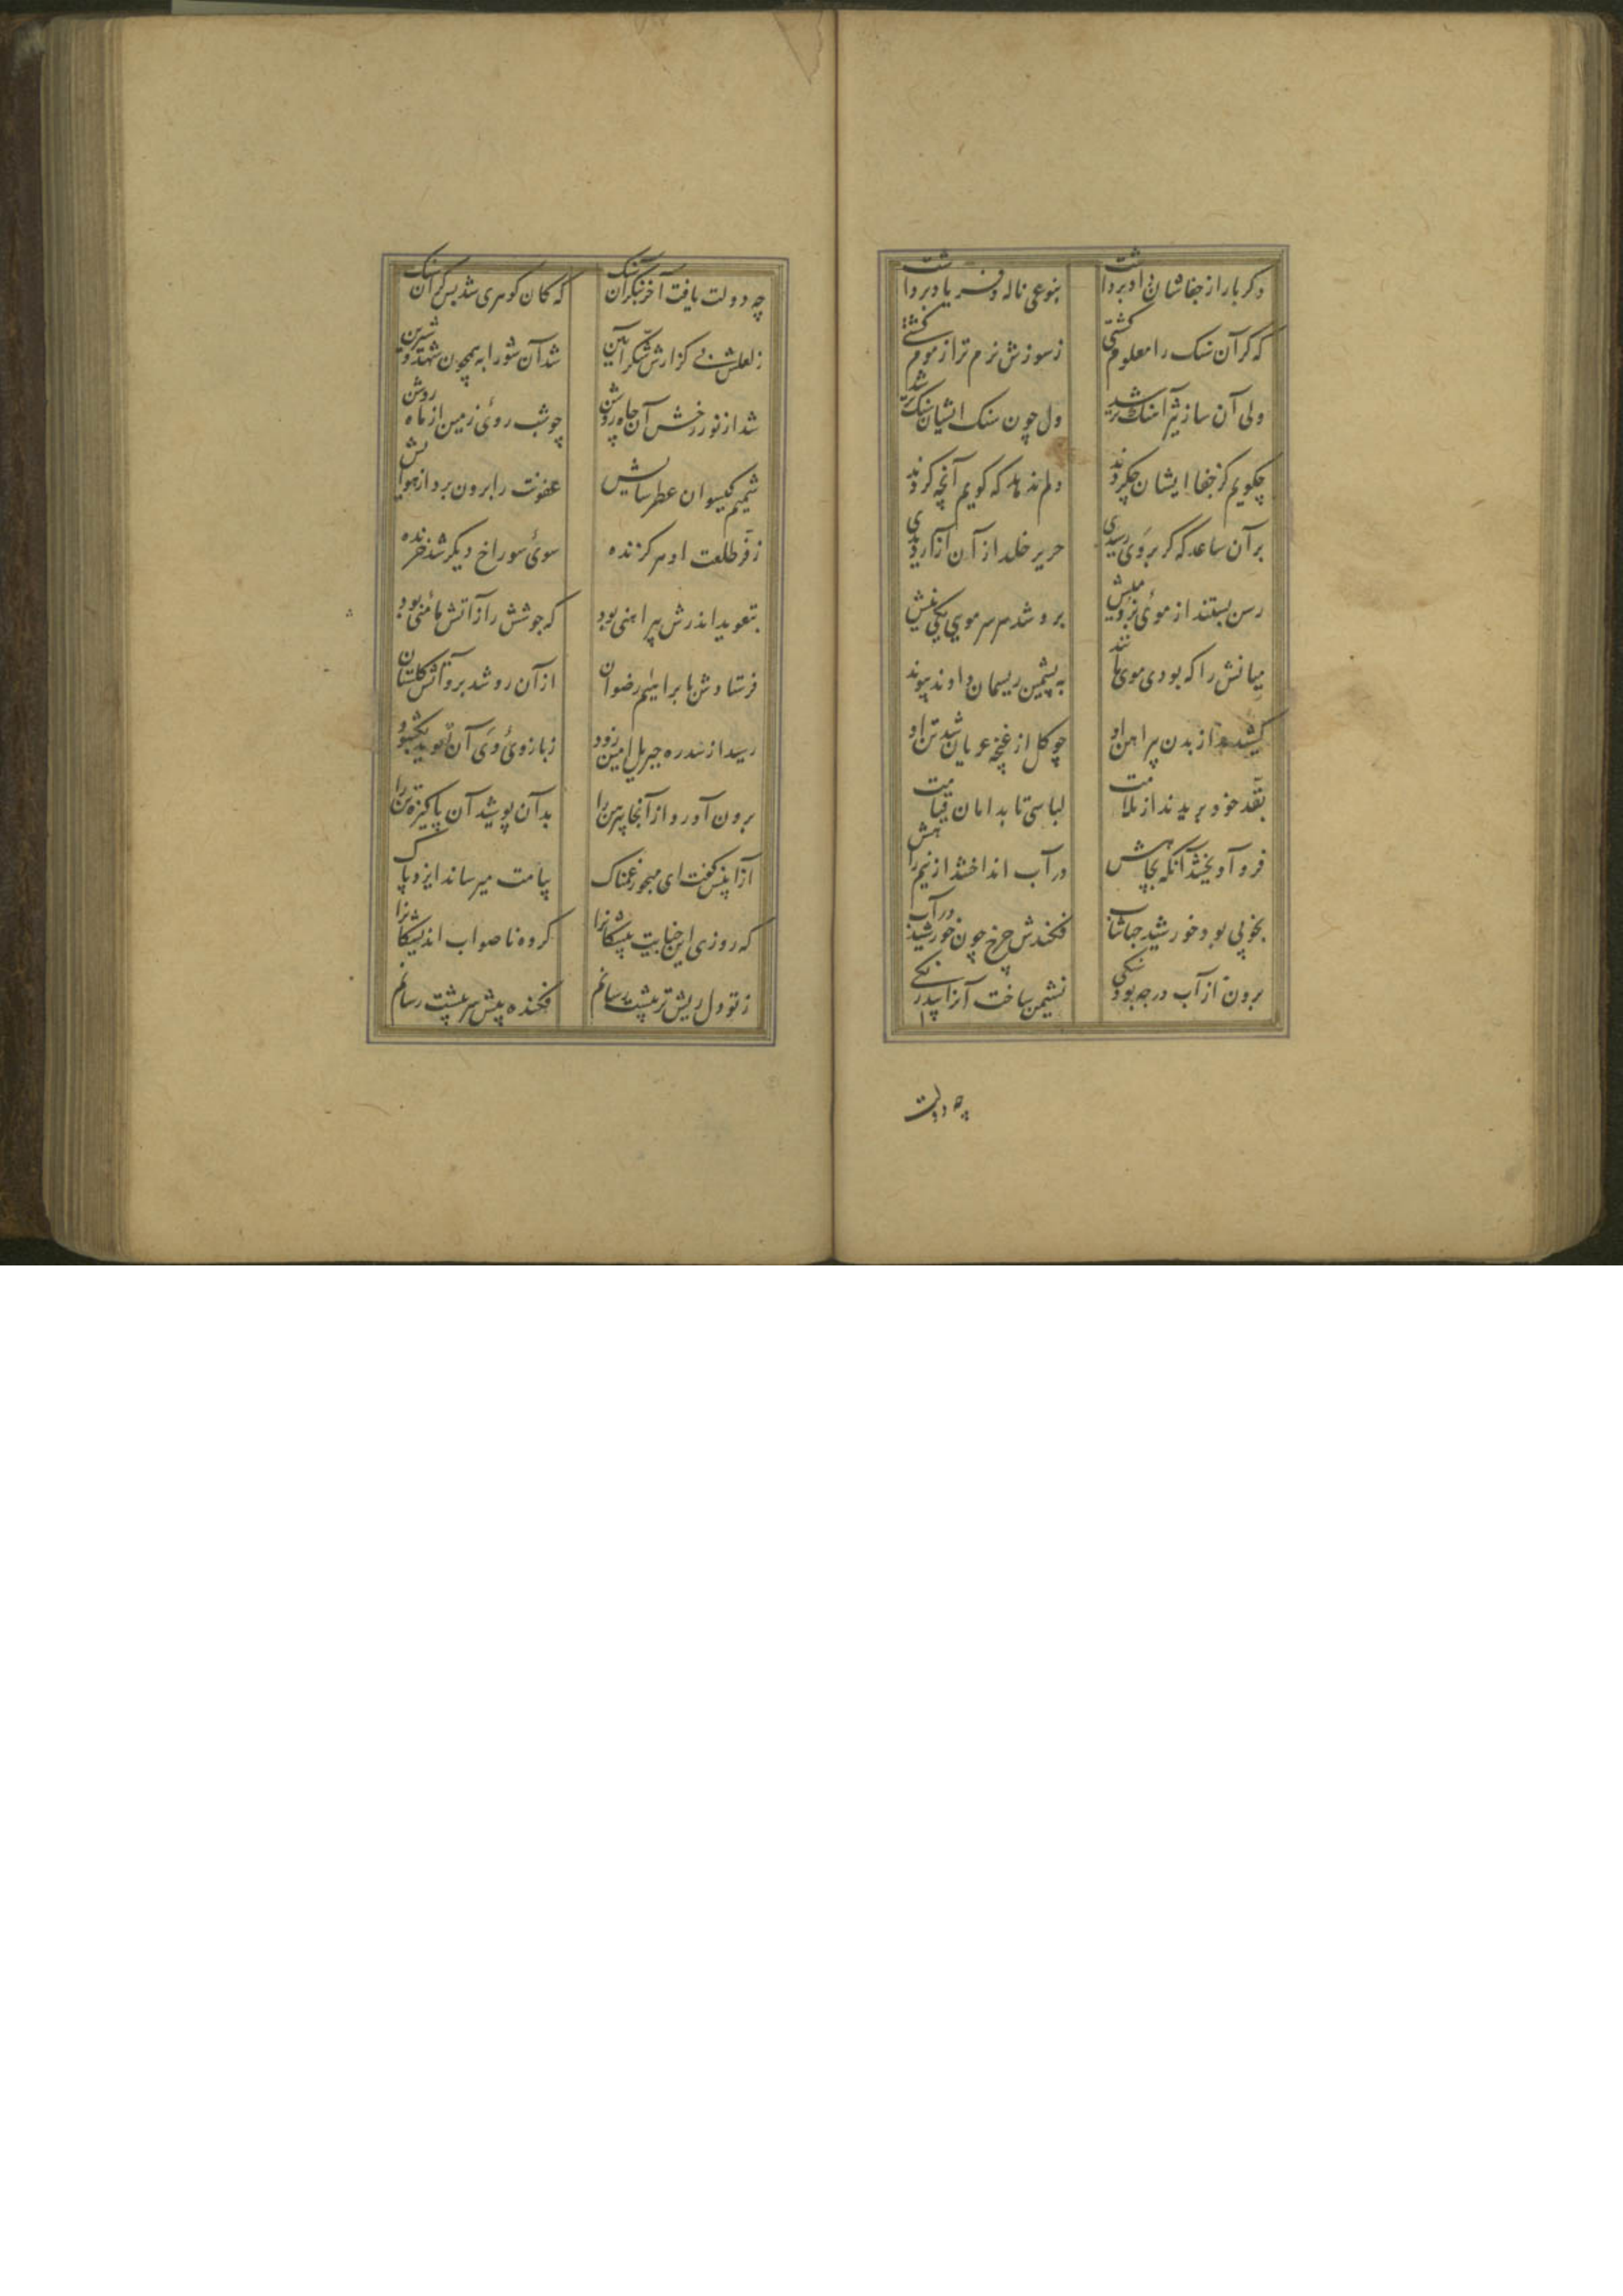 دکر بار از جفاشان داد برداشت بنوعی ناله و فریاد برداشت
که کر آن سنک را معلوم کشتی ز سوزش نرم تر از موم کشتی
ولی آن ساز تیز آهنک تر شد دل چون سنک ایشان سنک تر شد
چکویم کز جفا ایشان چکردند دلم ندهد که کویم آنچه کردند
بر آن ساعد که کر بر وی رسیدی حریر خلد از آن آزار دیدی
رسن بستند از موئی بز و میش برو شد هر سر مویی یکی نیش
میانش را که بودی موی مانند به پشمین ریسمان دادند پیوند
کشیدند از بدن پیراهن او چو کل از غنچه عریان شد تن او
بقد خود بریدند از ملامت لباسی تا بدامان قیامت
فرو آویختند آنکه بچاهش در آب انداختند از نیم راهش
بخوبی بود خورشید جهانتاب فکندش چرخ چون خورشید در آب
برون از آب در چه بود سنکی نشیمن ساخت آنرا بیدرنکی
چه دولت
چه دولت یافت آخر بنکر آن سنک که کان کوهری شد بس کران سنک
ز لعلش بی کزارش شکر آیین شد آن شورابه همچون شهد شیرین
شد از نور رخش آن چاه روشن چو شب روئ زمین از ماه روشن
شمیم کیسوان عطر سایش عفونت را برون برد از هوایش
ز فر طلعت او هر کزنده سوئ سوراخ دیکر شد خزنده
بتعویذ اندرش پیراهنی بود که جوشش را ز آتش مأمنی بود
فرستادش بابراهیم رضوان از آن رو شد برو آتش کلستان
رسید از سدره جبریل امین زود ز بازوئ وی آن تعویذ بکشود
برون آورد از آنجا پیرهن را بدان پوشید آن پاکیزه تن را
از آن پس کفت ای مهجور غمناک پیامت میرساند ایزد پاک
که روزی این خیانت پیشکانرا کروه ناصواب اندیشکانرا
ز تو دل ریش تر پیشت رسانم فکنده پیش سر پیشت رسانم